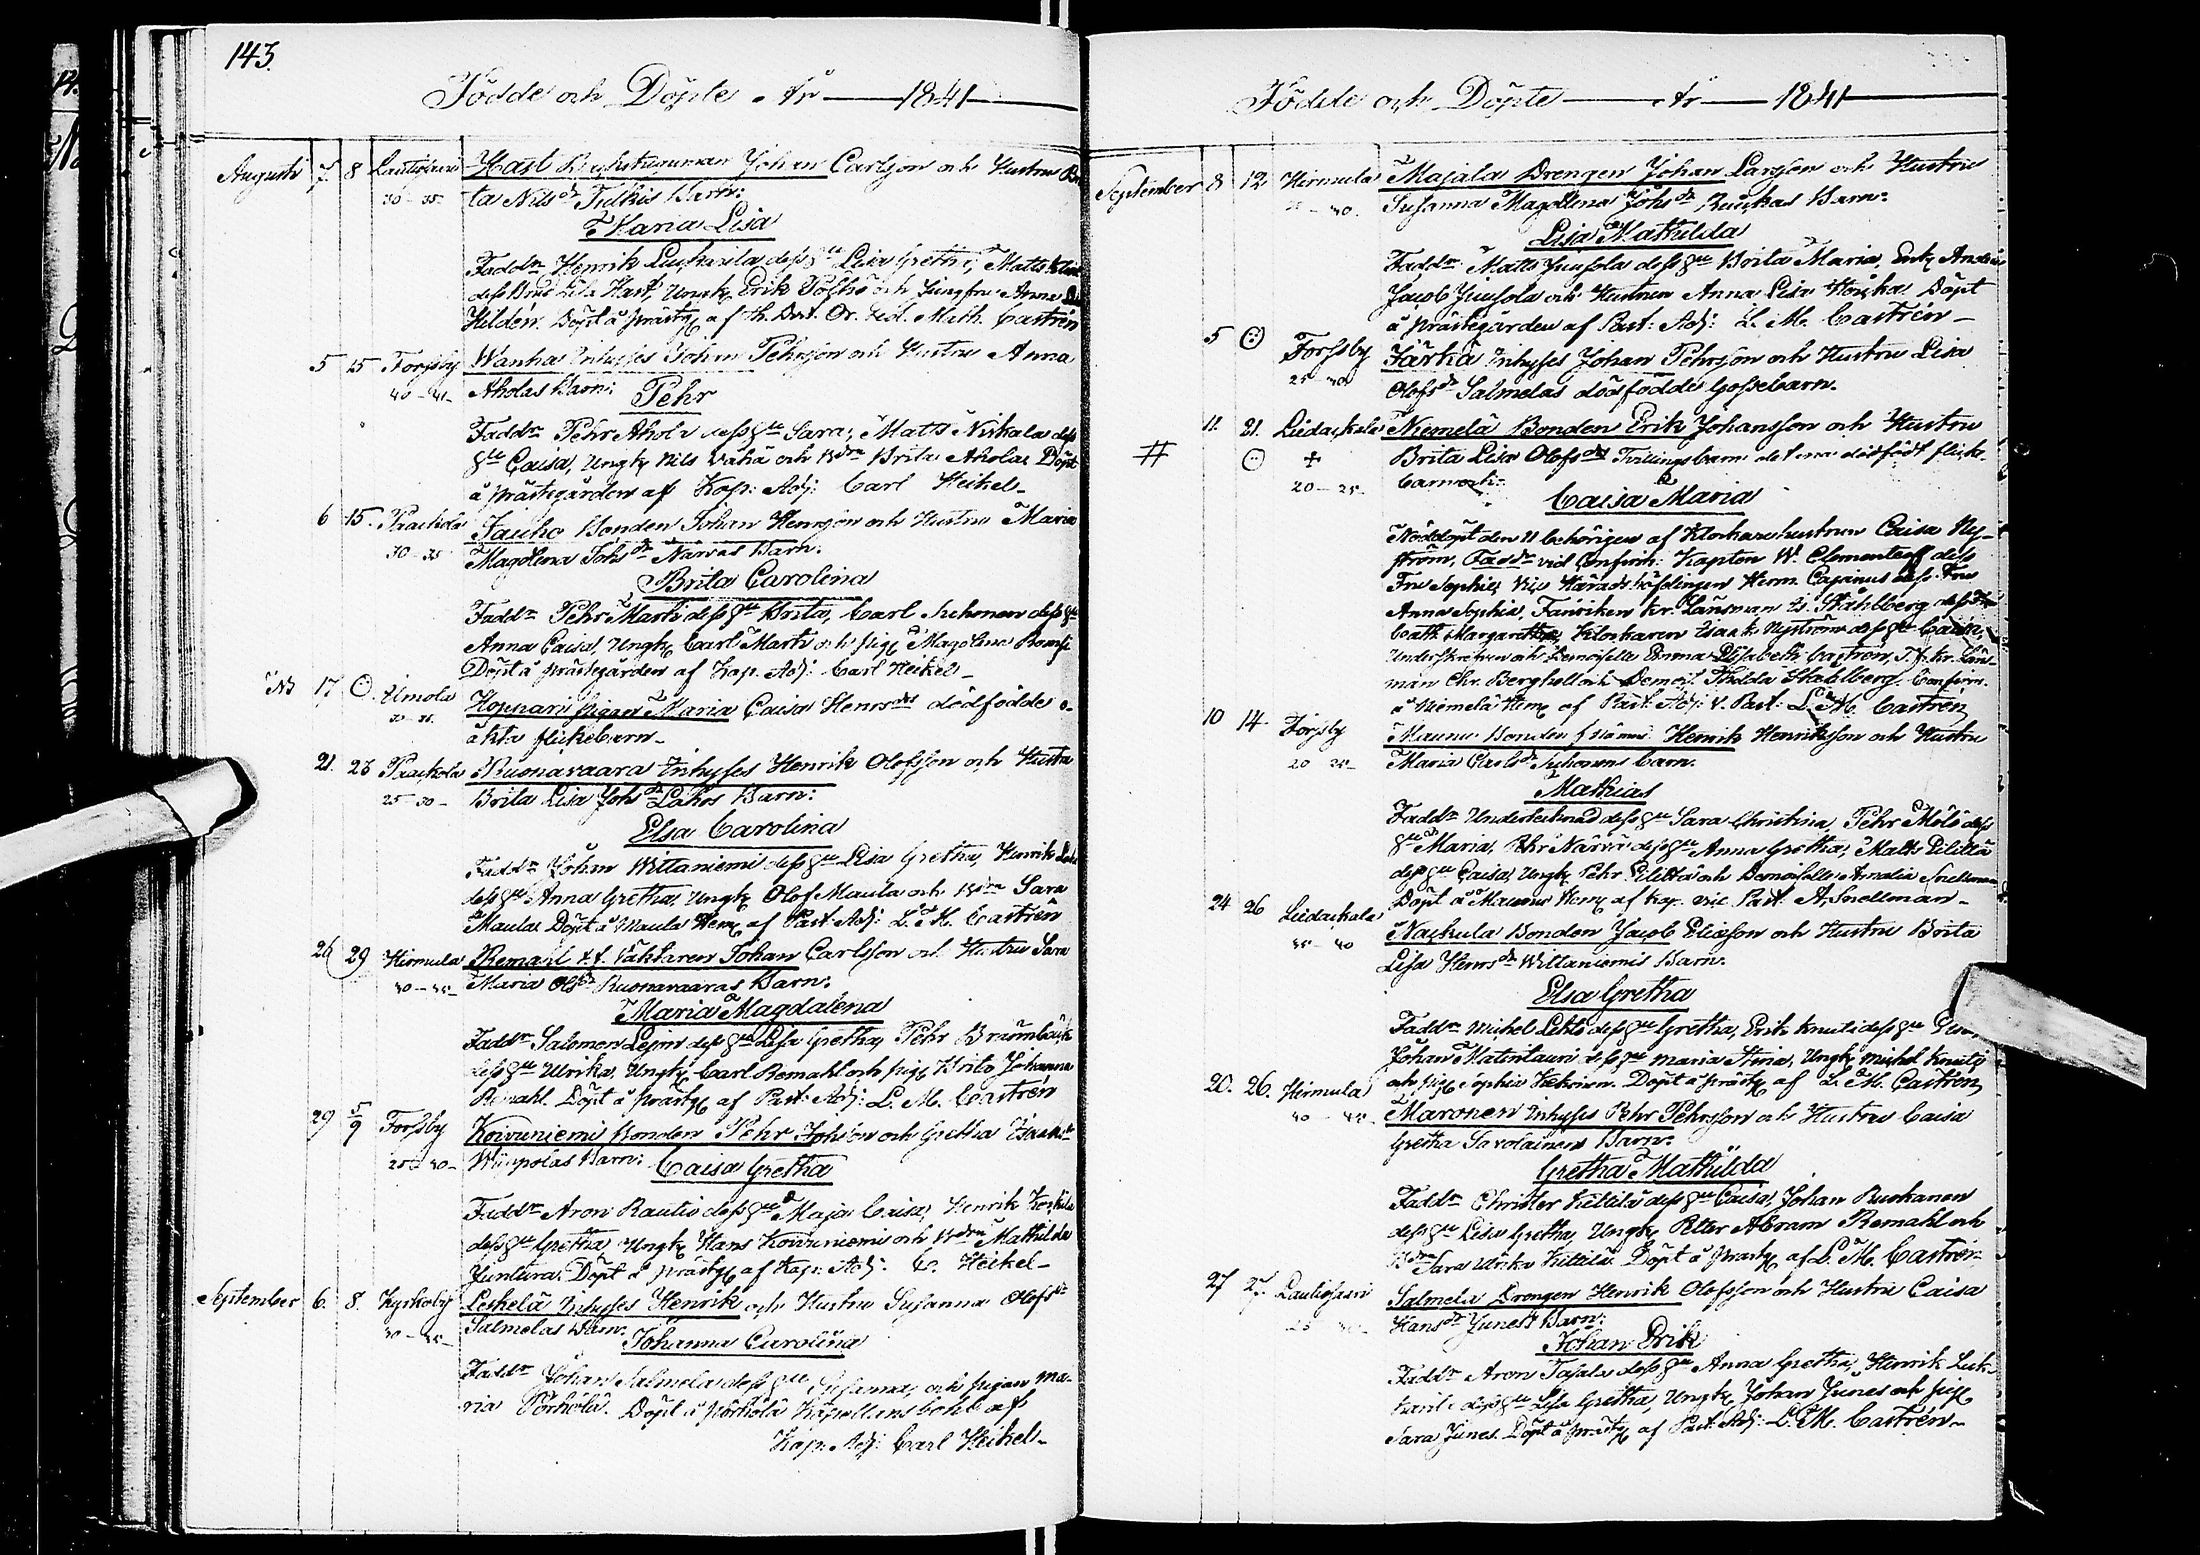 143.
Födde och Döpte År 1841
Augusti 7 8 Lautiosaari Hast Backstuguman Johan Carlsson och Hustru Bri
30–35 ta Nils dr Tulkis Barn:
Maria Lisa
Faddr Henrik dess hu Lisa Gretha, Matts
dess Brud Lisa Hast, Ungk Erik och Jungfru Anna
Hildén. Döpt å prästg af Math. Castrén
5 15 Forssby Wanha Inhyses Johan Pehrson och Hustru Anna
40–41 Aholas Barn: Pehr
Faddr Pehr Ahola dess hu Sara, Matts Niskala dess
hu Caisa, Ungk Nils Vähä och Bdrn Brita Ahola. Döpt
å prästegården af Kap: Adj: Carl Heikel–
6 15. Jaucho Bonden Johan Henrson och Hustru Maria
30–35 Magdlena Johs dr Närväs Barn:
Brita Carolina
Faddr Pehr Marti dess hu Brita, Carl dess hu
Anna Caisa, Ungk Carl Marti och pig Magdlena
Döpt å prästegården af Kap. Adj: Carl Heikel–
NB 17 Ilmola Hoppari pigan Maria Caisa Henrsdrs dödfödde o-
äkta flickebarn–
21. 23 Ruonavaara Inhyses Henrik Olofsson och Hustru
25–30– Brita Lisa Johs dr Lahos Barn:
Elsa Carolina
Faddr Johan Wittaniemi dess hu Lisa Gretha, Henrik
dess hu Anna Gretha, Ungk Olof Maula och Bdrn Sara
Maula. Döpt å Maula Hem af Past. Adj: L. M. Castrén
26 29 Hirmula Remahl t.f. Väktaren Johan Carlsson och Hustru Sara
Maria Ols dr Ruonavaaras Barn:
Maria Magdalena
Faddr Salomon dess hu Lisa Gretha, Pehr
dess hu Ulrika, Ungk Carl Remahl och pig Brita Johanna
Remahl. Döpt å prästg af Past. Adj: L. M. Castrén
29 5/9 Forssby Koivuniemi Bonden Pehr Johsson och Gretha Isaks dr
25–30– Barn: Caisa Gretha
Faddr Aron Rautio dess hu Maja Caisa, Henrik
dess hu Gretha, Ungk Hans Koivuniemi och Bdrn Mathilda
Juntura. Döpt å prästg af Kap. Adj: C. Heikel–
September 6. 8. Kyrkoby Leskelä Inhyses Henrik och Hustru Susanna Olofs dr
Salmelas Barn:
Johanna Carolina
Faddr Johan Salmela dess hu Susanna, och pigan Ma-
ria Pörhölä. Döpt å Pörhölä Kapellans bohl af
Kap. Adj: Carl Heikel–
Födde och Döpte År 1841
September 8 12 Hirmula Majala Drengen Johan Larsson och Hustru
Susanna Magdlena Johs dr Barn:
Lisa Mathilda
Faddr Matts Juusola dess hu Brita Maria, Enk
Jacob Juusola och Hustrun Anna Lisa Döpt
å prästegården af Past. Adj: L. M. Castrén–
5 Forssby Färkä Inhyses Johan Pehrsson och Hustru Lisa
Olofs dr Salmelas dödfödde Gossebarn.
11. 21. Liedackala Niemelä Bonden Erik Johansson och Hustru
# Brita Lisa Olofsdrs Tvillingsbarn det ena dödfödt flick-
20–25– barn och:
Caisa Maria
Nöddöpt den 11 behörigen af Klockarehustrun Caisa Ny-
ström, Faddr vid Confirm: Kapten W. Clementeoff dess
Fru Sophie, Vice Häradshöfdingen Herm. Cajanus dess Fru
Anna Sophia, Fänriken kr. Länsman G. Ståhlberg dess Fru
Cath Margaretha, Klockaren Isaak Nyström dess hu Caisa,
Underskrefven och Demoiselle Emma Elisabeth Castrén, T.f. kr. Läns-
man Chr. Berghell och Demois. Hedda Stahlberg. Confirm.
å Niemelä Hem af Past. Adj: V. Past. L. M. Castrén
10 14 Forssby Maunu Bonden Henrik Henriksson och Hustru
Maria Carls dr barn.
Mathias
Faddr Undertecknad dess hu Sara Christina, Pehr dess
hu Maria, Pehr Närvä dess hu Anna Gretha, Matts
dess hu Caisa, Ungk Pehr och Demoiselle Amalia Snellman
Döpt å Maunu Hem af Kap. vic. Past. A. Snellman–
24 26 Liedackala Nackula Bonden Jacob Eliasson och Hustru Brita
Lisa Henrs dr Wittaniemis Barn:
Elsa Gretha
Faddr Michel Lehto dess hu Gretha, Erik Knuti dess hu
Johan Matinlauri dess hu Maria Stina, Ungk Michel Knuti
och pig Sophia Döpt å prästg af L. M. Castrén,
20. 26. Hirmula Maronen Inhyses Pehr Pehrsson och Hustru Caisa
Gretha Savolainens Barn:
Gretha Mathilda
Faddr Christer Kittilä dess hu Caisa, Johan Ruokanen
dess hu Lisa Gretha, Ungk Petter Abram Remahl och
Bdrn Sara Ulrika Kittilä. Döpt å prästg af L. M. Castrén–
27 27. Lautiosaari Salmela Drengen Henrik Olofsson och Hustru Caisa
Hans dr Junes's Barn:
Johan Erik
Faddr Aron Tasala dess hu Anna Gretha, Henrik
dess hu Lisa Gretha, Ungk Johan Junes och pig
Sara Junes. Döpt å prästg af Past. Adj: L. M. Castrén–